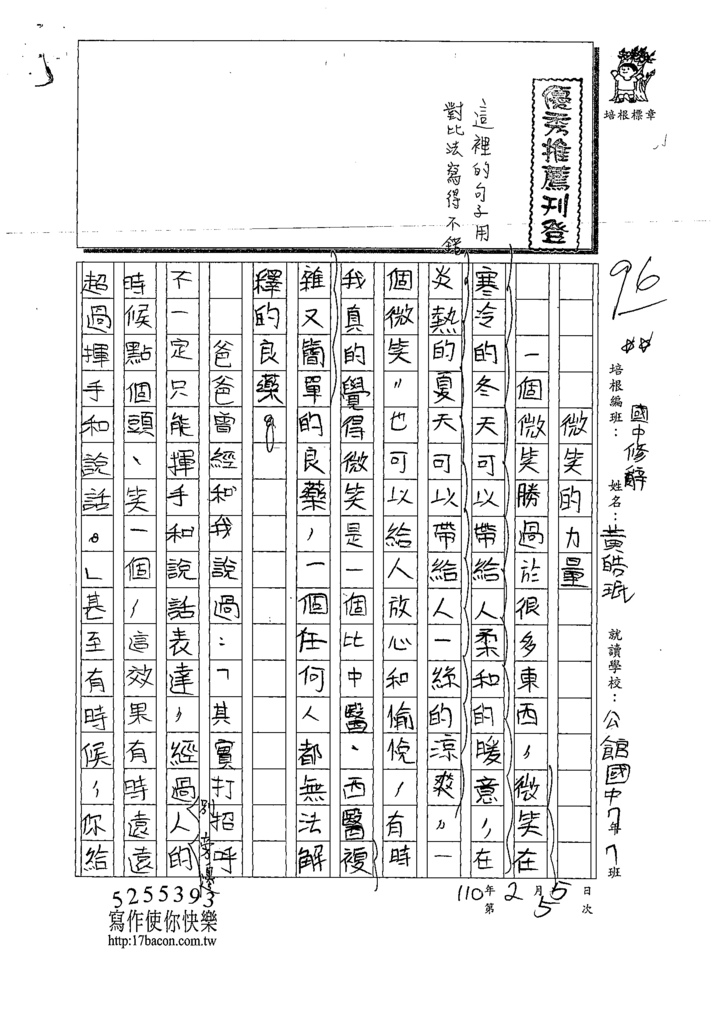 培根標章
優秀推薦刊登
這裡的句子用
對比法寫得不錯
96
培根編班：國中修辭
姓名：黃皓珉
就讀學校：公館國中7年7班
微笑的力量
一個微笑勝過於很多東西，微笑在
寒冷的冬天可以帶給人柔和的暖意，在
炎熱的夏天可以帶給人一絲的涼爽，一
個微笑，也可以給人放心和愉悅，有時
我真的覺得微笑是一個比中醫、西醫複
雜又簡單的良藥，一個任何人都無法解
釋的良藥。
爸爸曾經和我說過：「其實打招呼
不一定只能揮手和說話表達，經過人的
別
旁邊
時候點個頭、笑一個，這效果有時遠遠
超過揮手和說話。」甚至有時候，你給
110年2月5日
第5次
5255393
寫作使你快樂
http:17bacon.com.tw